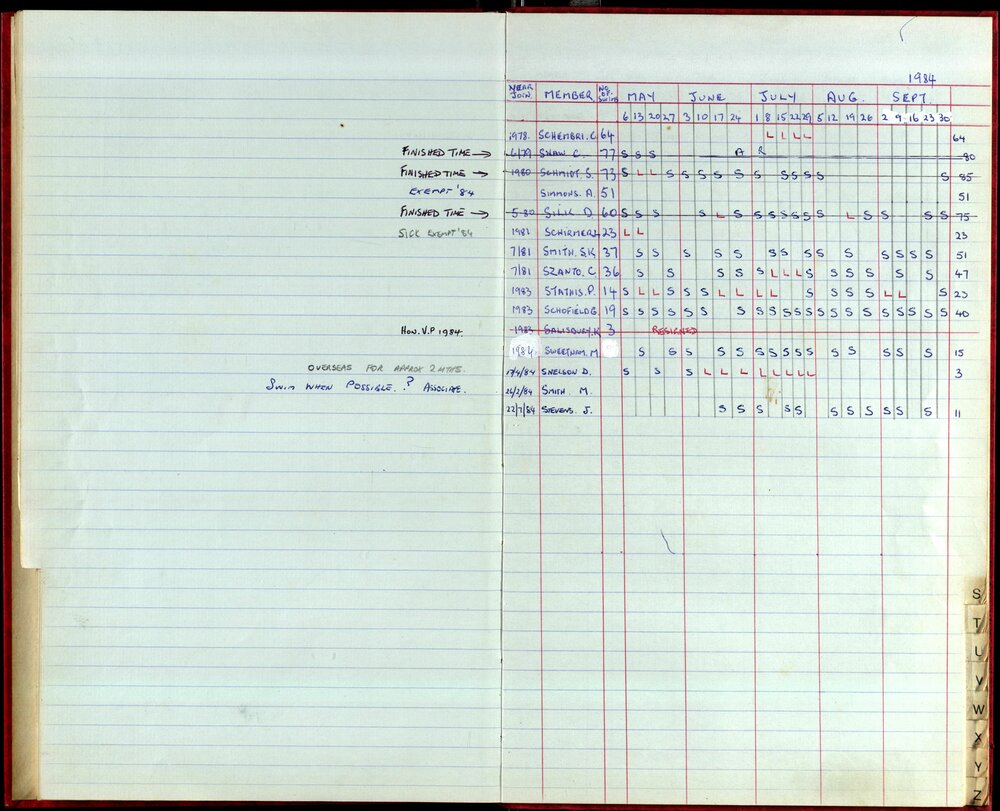 1984
YEAR JOIN MEMBER NO. OF SWIMS MAY JUNE JULY AUG. SEPT.
6 13 20 27 3 10 17 24 1 8 15 22 29 5 12 19 26 2 9 16 23 30
1978. SCHEMBRI. C 64 L L L L 64
FINISHED TIME → 6/79 SHAW C. 77 S S S A R 80
FINISHED TIME → 1980 SCHMIDT. S. 73 S L L S S S S S S S S S S S S 85
EXEMPT '84 SIMMONS. A. 51 51
FINISHED TIME → 5-80 SILK D. 60 S S S S L S S S S S S S L S S S S 75
SICK EXEMPT '84 1981 SCHIRMER. 23 L L 23
7/81 SMITH. S.K 37 S S S S S S S S S S S S S S 51
7/81 SZANTO. C. 36 S S S S S L L L S S S S S S 47
1983 STATHIS. P. 14 S L L S S S L L L L L S S S S L L S 23
1983 SCHOFIELD G. 19 S S S S S S S S S S S S S S S S S S S S S 40
HON. V.P 1984. 1983 SALISBURY. K 3 RESIGNED
1984 SWEETNAM. M S S S S S S S S S S S S S S S 15
OVERSEAS FOR APPROX 2 MTHS. 17/4/84 SNELSON D. S S S L L L L L L L L 3
SWIM WHEN POSSIBLE. ? ASSOCIATE. 26/2/84 SMITH M.
22/7/84 STEVENS. J. S S S S S S S S S S S S 11
S
T
U
V
W
X
Y
Z